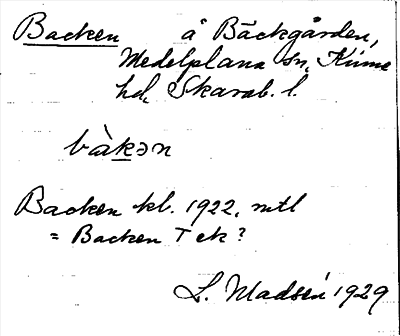 Backen å Bäckgården,
Medelplana sn, Kinne
hd, Skarab. l.
bàkən
Backen kl. 1922, mtl
= Backen T ek?
L. Madsén 1929